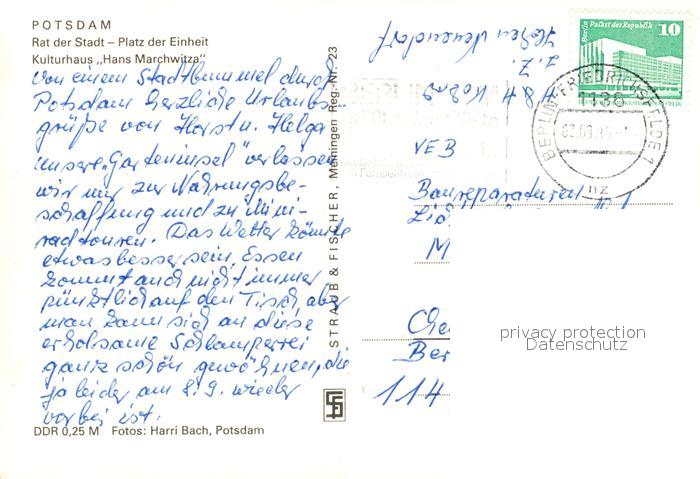 POTSDAM
Rat der Stadt – Platz der Einheit
Kulturhaus „Hans Marchwitza"
Von einem Stadtbummel durch
Potsdam herzliche Urlaubs-
grüße von Horst u. Helga
unsere „Garteninsel" verlassen
wir nur zur Nahrungsbe-
schaffung und zu Mini-
radtouren. Das Wetter könnte
etwas besser sein, Essen
kommt auch nicht immer
pünktlich auf den Tisch aber
man kann sich an diese
erholsame Schlamperei
ganz schön gewöhnen, die
ja leider am 8.9. wieder
vorbei ist.
DDR 0,25 M Fotos: Harri Bach, Potsdam
STRAUB & FISCHER, Meiningen Reg.-Nr. 23
z. Z.
Berlin Palast der Republik
10
BERLIN-FRIEDRICHSFELDE 1
1136
nz
VEB
Baureparaturen
M
Che
Ber
114
privacy protection
Datenschutz